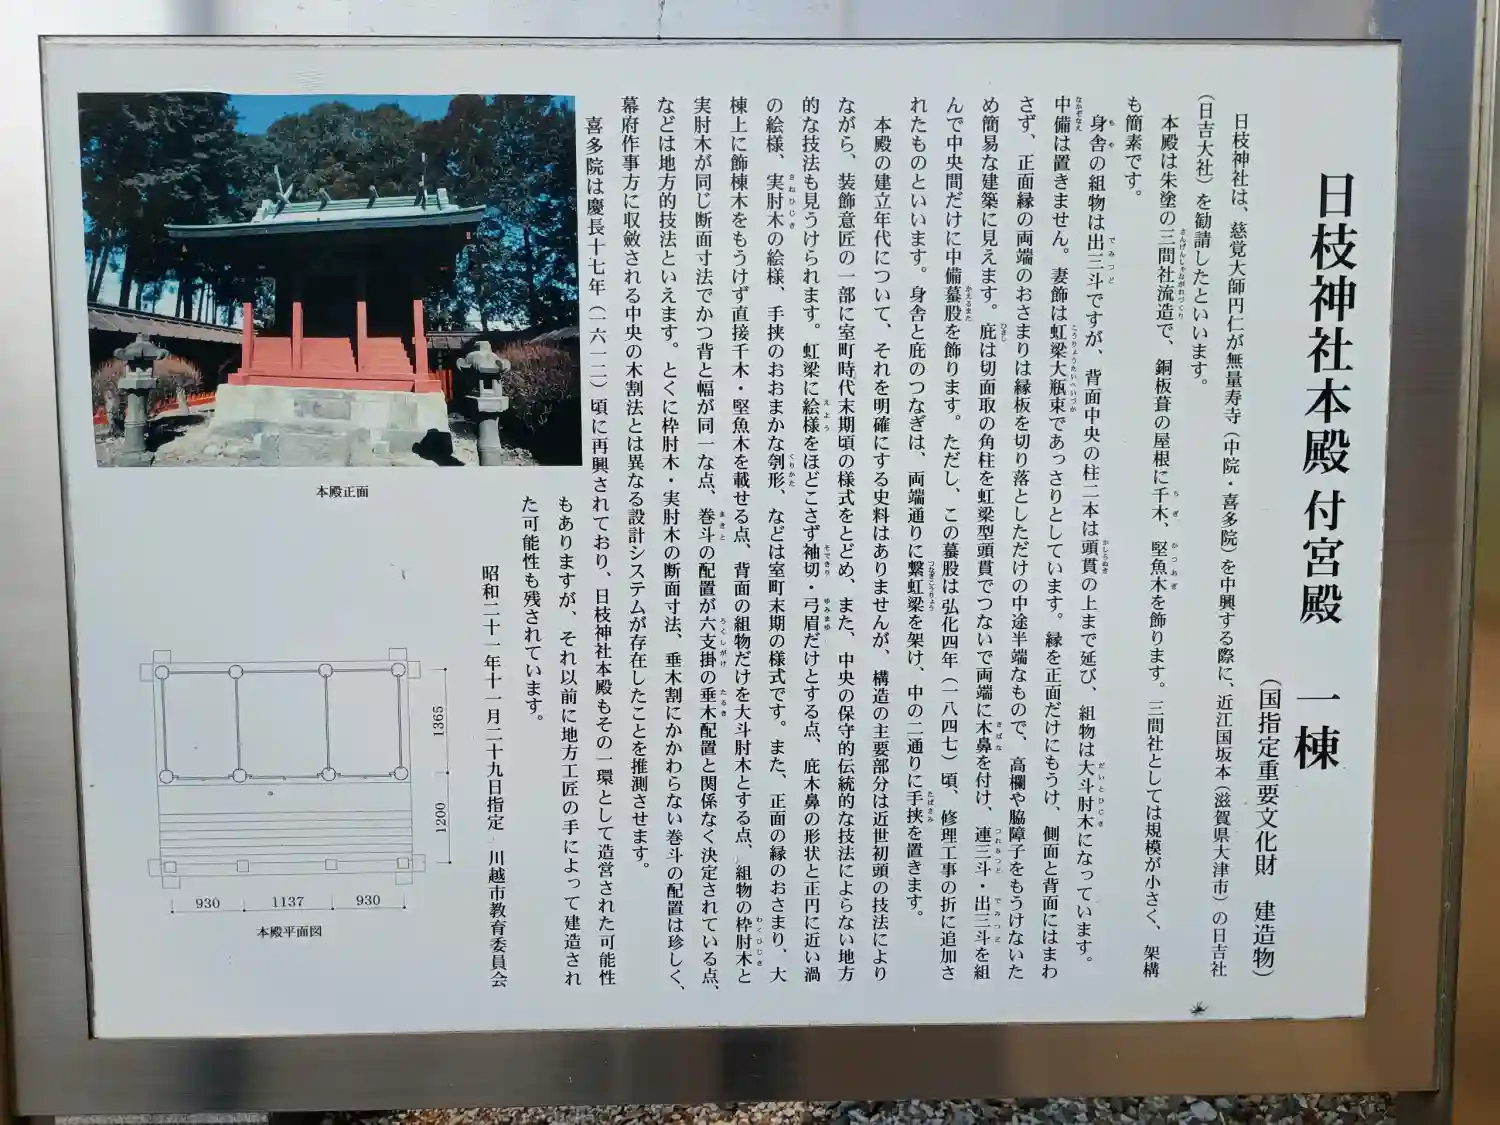 日枝神社本殿 付宮殿 一棟
(国指定重要文化財 建造物)
日枝神社は、慈覚大師円仁が無量寿寺(中院・喜多院)を中興する際に、近江国坂本(滋賀県大津市)の日吉社
(日吉大社)を勧請したといいます。
本殿は朱塗の三間社流造で、銅板葺の屋根に千木、堅魚木を飾ります。三間社としては規模が小さく、架構
も簡素です。
身舎の組物は出三斗ですが、背面中央の柱二本は頭貫の上まで延び、組物は大斗肘木になっています。
中備は置きません。妻飾は虹梁大瓶束であっさりとしています。縁を正面だけにもうけ、側面と背面にはまわ
さず、正面縁の両端のおさまりは縁板を切り落としただけの中途半端なもので、高欄や脇障子をもうけないた
め簡易な建築に見えます。庇は切面取の角柱を虹梁型頭貫でつないで両端に木鼻を付け、連三斗・出三斗を組
んで中央間だけに中備蟇股を飾ります。ただし、この蟇股は弘化四年(一八四七)頃、修理工事の折に追加さ
れたものといいます。身舎と庇のつなぎは、両端通りに繋虹梁を架け、中の二通りに手挟を置きます。
本殿の建立年代について、それを明確にする史料はありませんが、構造の主要部分は近世初頭の技法により
ながら、装飾意匠の一部に室町時代末期頃の様式をとどめ、また、中央の保守的伝統的な技法によらない地方
的な技法も見うけられます。虹梁に絵様をほどこさず袖切・弓眉だけとする点、庇木鼻の形状と正円に近い渦
の絵様、実肘木の絵様、手挟のおおまかな刳形、などは室町末期の様式です。また、正面の縁のおさまり、大
棟上に飾棟木をもうけず直接千木・堅魚木を載せる点、背面の組物だけを大斗肘木とする点、組物の枠肘木と
実肘木が同じ断面寸法でかつ背と幅が同一な点、巻斗の配置が六支掛の垂木配置と関係なく決定されている点、
などは地方的技法といえます。とくに枠肘木・実肘木の断面寸法、垂木割にかかわらない巻斗の配置は珍しく、
幕府作事方に収斂される中央の木割法とは異なる設計システムが存在したことを推測させます。
喜多院は慶長十七年(一六一二)頃に再興されており、日枝神社本殿もその一環として造営された可能性
もありますが、それ以前に地方工匠の手によって建造され
た可能性も残されています。
昭和二十一年十一月二十九日指定 川越市教育委員会
もや
なかぞなえ
さんげんしゃながれづくり
でみつど
ちぎ
かつおぎ
かしらぬき
だいとひじき
こうりょうたいへいづか
ひさし
きばな
つれみつど
でみつど
かえるまた
つなぎこうりょう
たばさみ
えよう
そできり
ゆみまゆ
さねひじき
くりかた
わくひじき
まきと
ろくしがけ
たるき
本殿正面
1365
1200
930
1137
930
本殿平面図